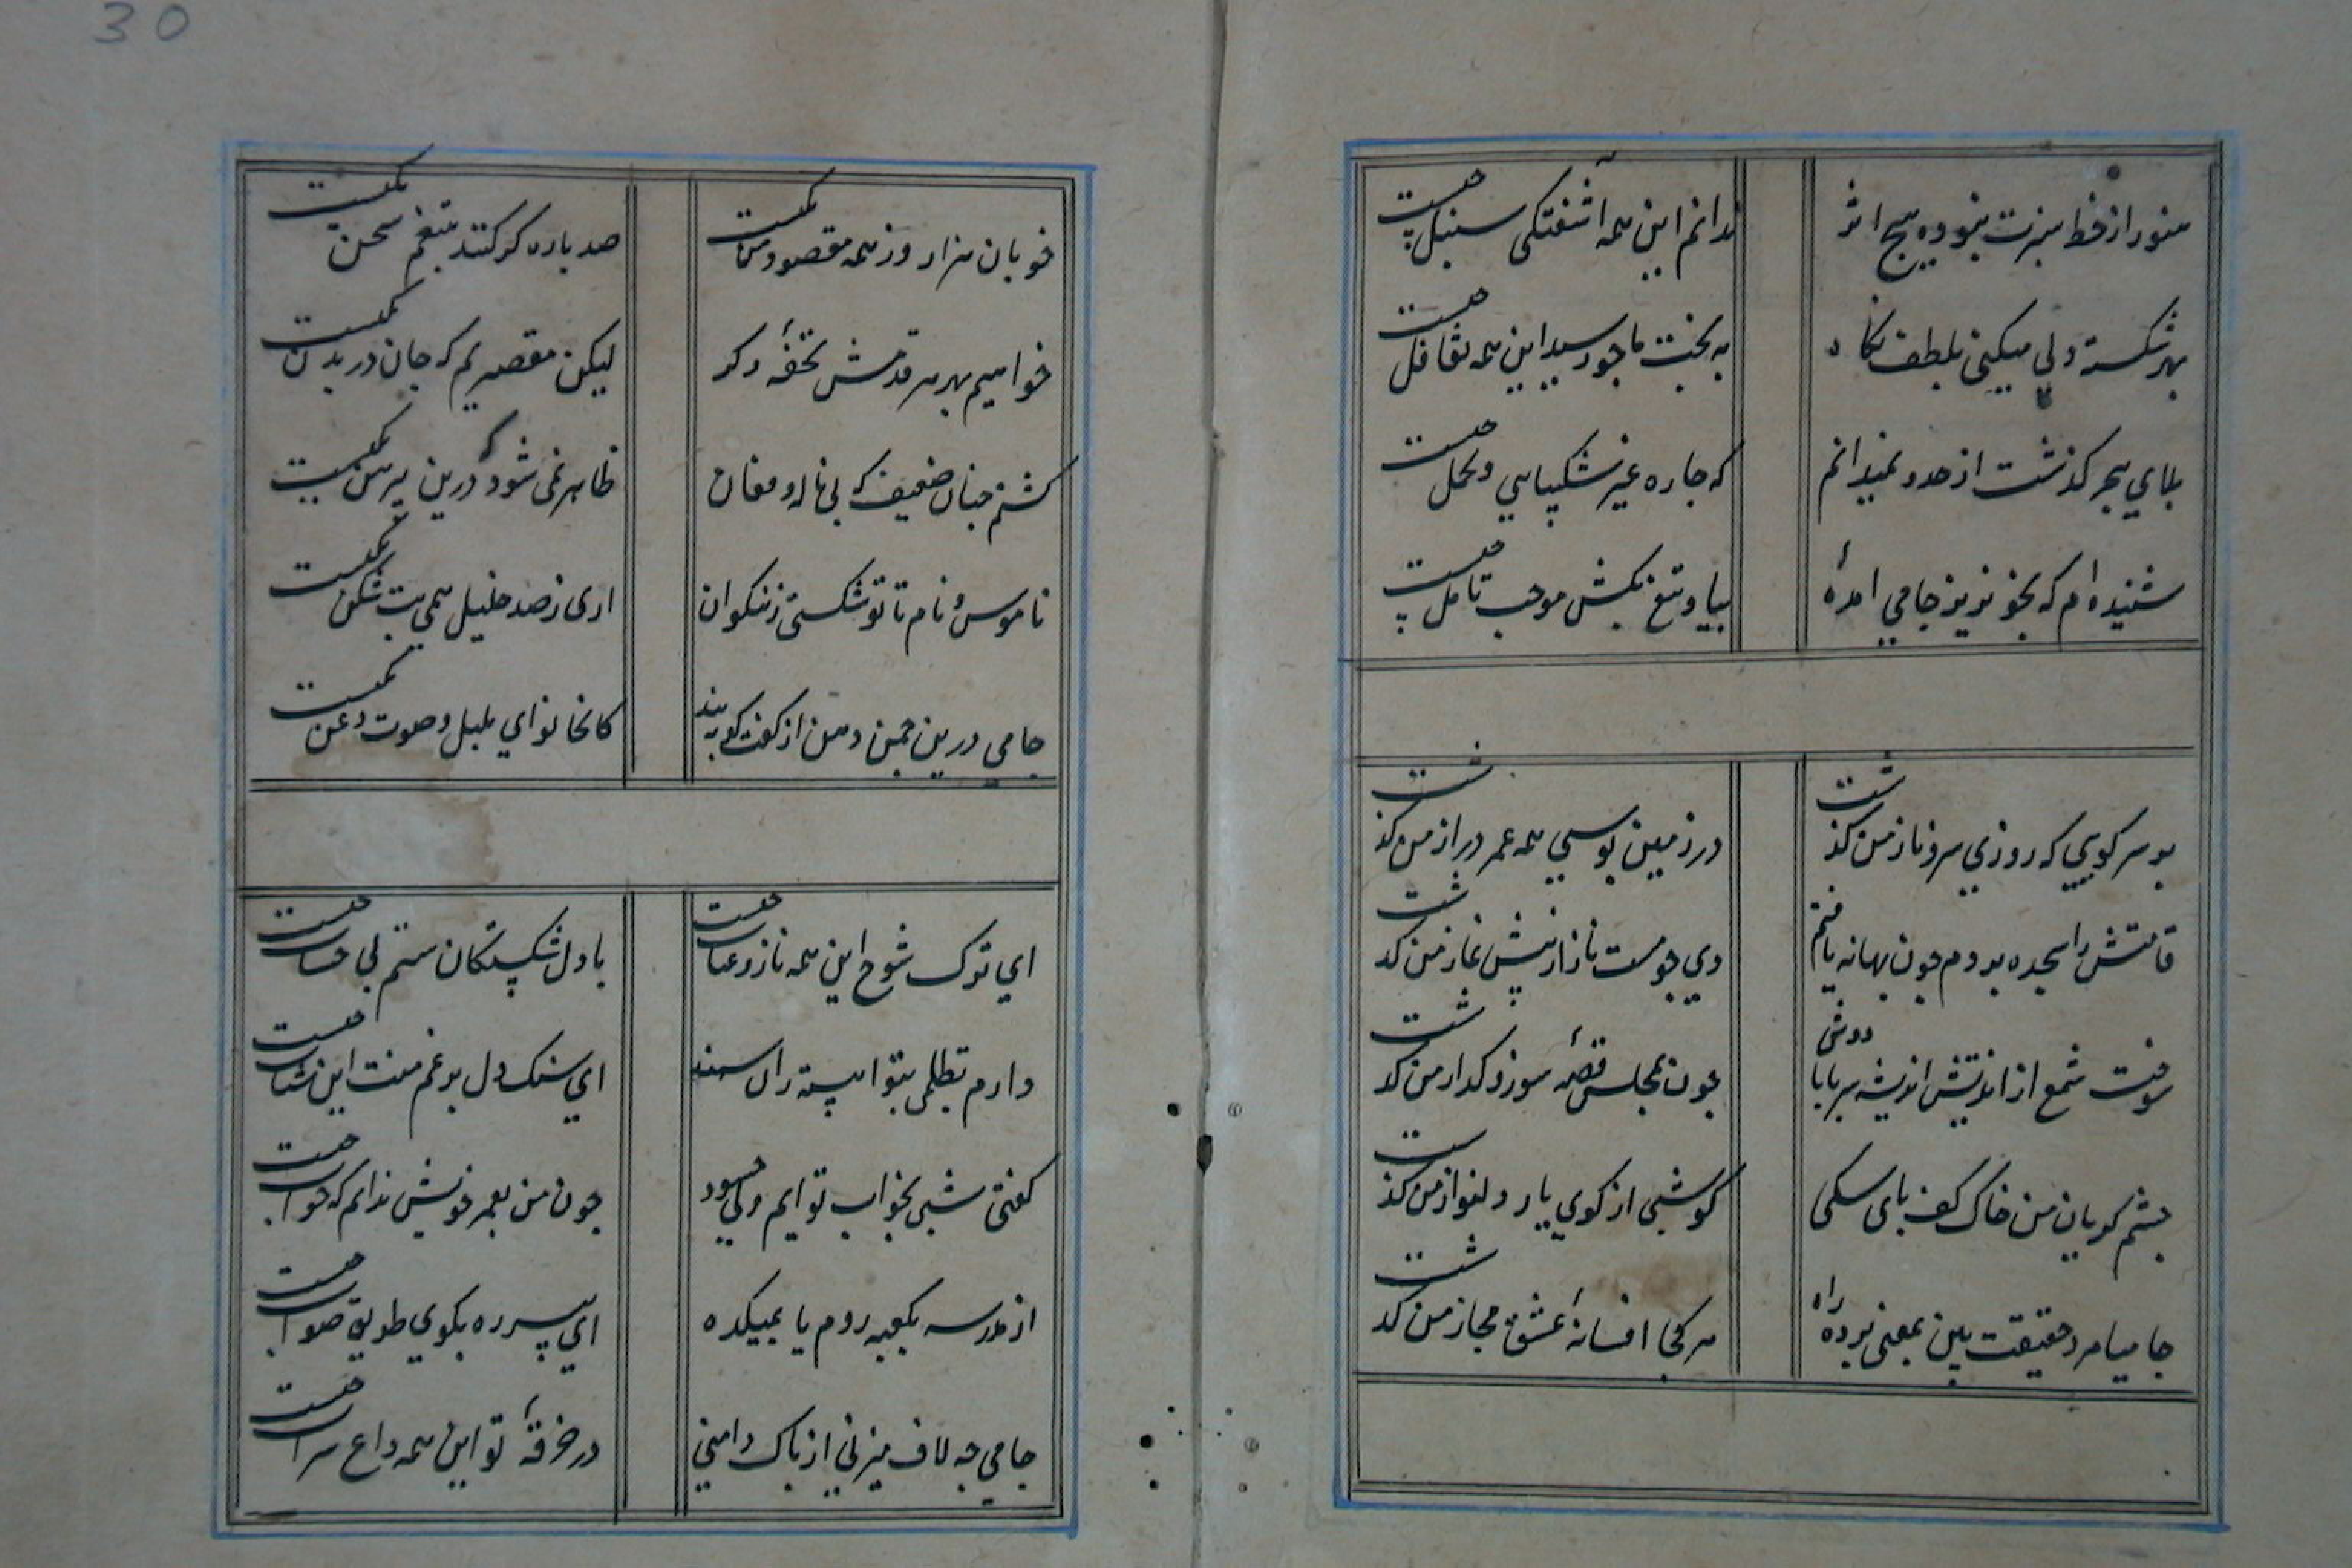 30
هنوز از خط سبزت نبوده هیچ اثر
ندانم این همه آشفتگی سنبل چیست
بهر شکسته دلی میکنی بلطف نگاه
به بخت ما چو رسید این همه تغافل چیست
بلای هجر گذشت از حد و نمیدانم
که چاره غیر شکیبایی و تحمل چیست
شنیده ام که بخونریز جامی امدهٔ
بیا و تیغ بکش موجب تامل چیست
بر سر کویی که روزی سرو ناز من گذشت
در زمین بوسی همه عمر دراز من گذشت
قامتش را سجده بردم چون بهانه یافتم
دی چو مست ناز از پیش نماز من گذشت
سوخت شمع از اتش اندیشه سر تا پا دوش
چون بمجلس قصهٔ سوز و گداز من گذشت
چشم گریان من خاک کف پای سگی
کو شبی از کوی یار دلنواز من گذشت
جامیا مرد حقیقت بین بمعنی برده راه
هر کجا افسانهٔ عشق مجاز من گذشت
خوبان هزار وز همه مقصود من یکیست
صد پاره گر کنند بتیغم سخن یکیست
خواهیم بهر هر قدمش تحفهٔ دگر
لیکن مقصریم که جان در بدن یکیست
گشتم چنان ضعیف که بی ناله و فغان
ظاهر نمی شود که درین پیرهن یکیست
ناموس و نام ما تو شکستی ز نیکوان
اری ز صد خلیل همی بت شکن یکیست
جامی درین چمن دهن از گفت گو ببند
کانجا نوای بلبل و صوت زغن یکیست
ای ترک شوخ این همه ناز و عتاب چیست
با دل شکستگان ستم بی حساب چیست
دارم تظلمی بتو اهسته ران سمند
ای سنگدل بر غم منت این شتاب چیست
گفتی شبی بخواب تو ایم ولی چسود
چون من بعمر خویش ندانم که خواب چیست
از مدرسه بکعبه روم یا بمیکده
ای پیر ره بگوی طریق صواب چیست
جامی چه لاف میزنی از پاک دامنی
در خرقهٔ تو این همه داغ شراب چیست